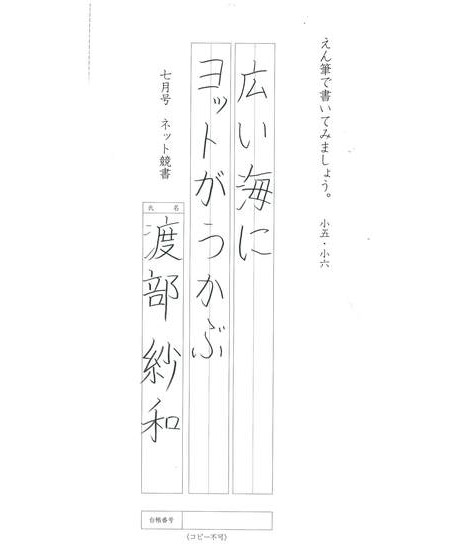 えん筆で書いてみましょう。 小五・小六
広い海に
ヨットがうかぶ
七月号 ネット競書
氏 名
渡部紗和
台帳番号
〈コピー不可〉